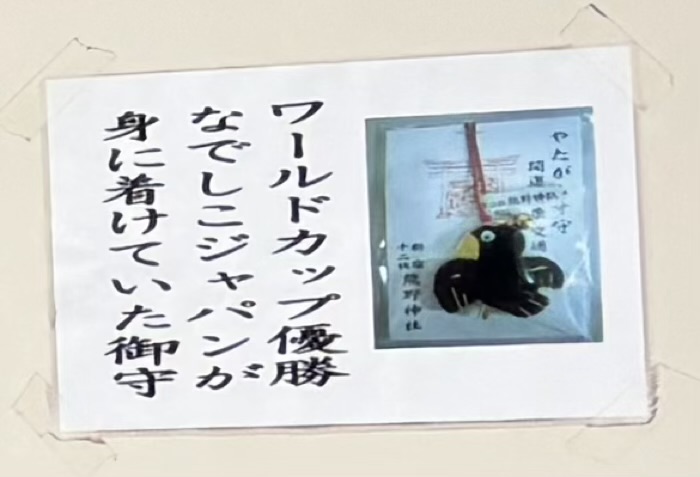 ワールドカップ優勝
なでしこジャパンが
身に着けていた御守
やたがらす守
開運 神泉交通
新宿
十二社 熊野神社